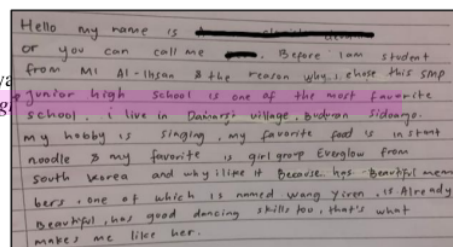 Hello my name is
or you can call me . Before I am student
from MI Al-Ihsan & the reason why i chose this smp
junior high school is one of the most favorite
school. i live in village, Buduran Sidoarjo.
my hobby is singing, my favorite food is instant
noodle & my favorite is girl group Everglow from
south Korea and why i like it Because has Beautiful mem
bers, one of which is named Wang Yiren, is Already
Beautiful, has good dancing skills too, that's what
makes me like her.